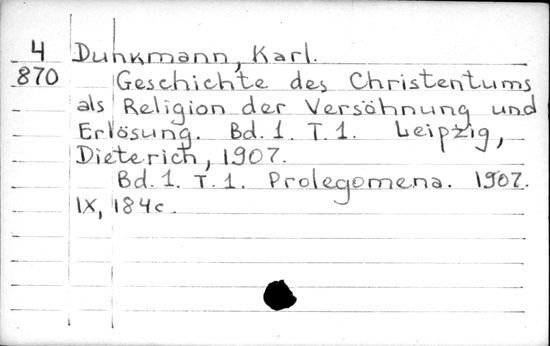 4 Duhkmann, Karl.
870 Geschichte des Christentums
als Religion der Versöhnung und
Erlösung. Bd. 1. T. 1. Leipzig,
Dieterich, 1907.
Bd. 1. T. 1. Prolegomena. 1907.
IX, 184c.